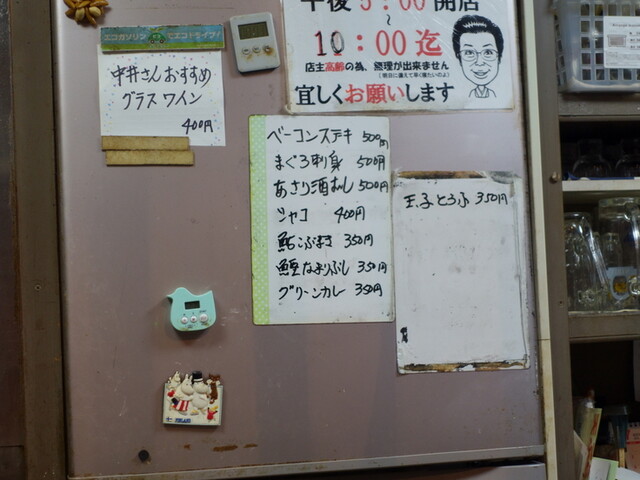 エコガソリン でエコドライブ!
中井さんおすすめ
グラスワイン
400円
午後5:00開店
～
10:00迄
店主高齢の為、経理が出来ません
宜しくお願いします
ベーコンステキ 500円
まぐろ刺身 500円
あさり酒むし 500円
シャコ 400円
鮎こぶまき 350円
なまりぶし 350円
グリーンカレー 350円
玉子とうふ 350円